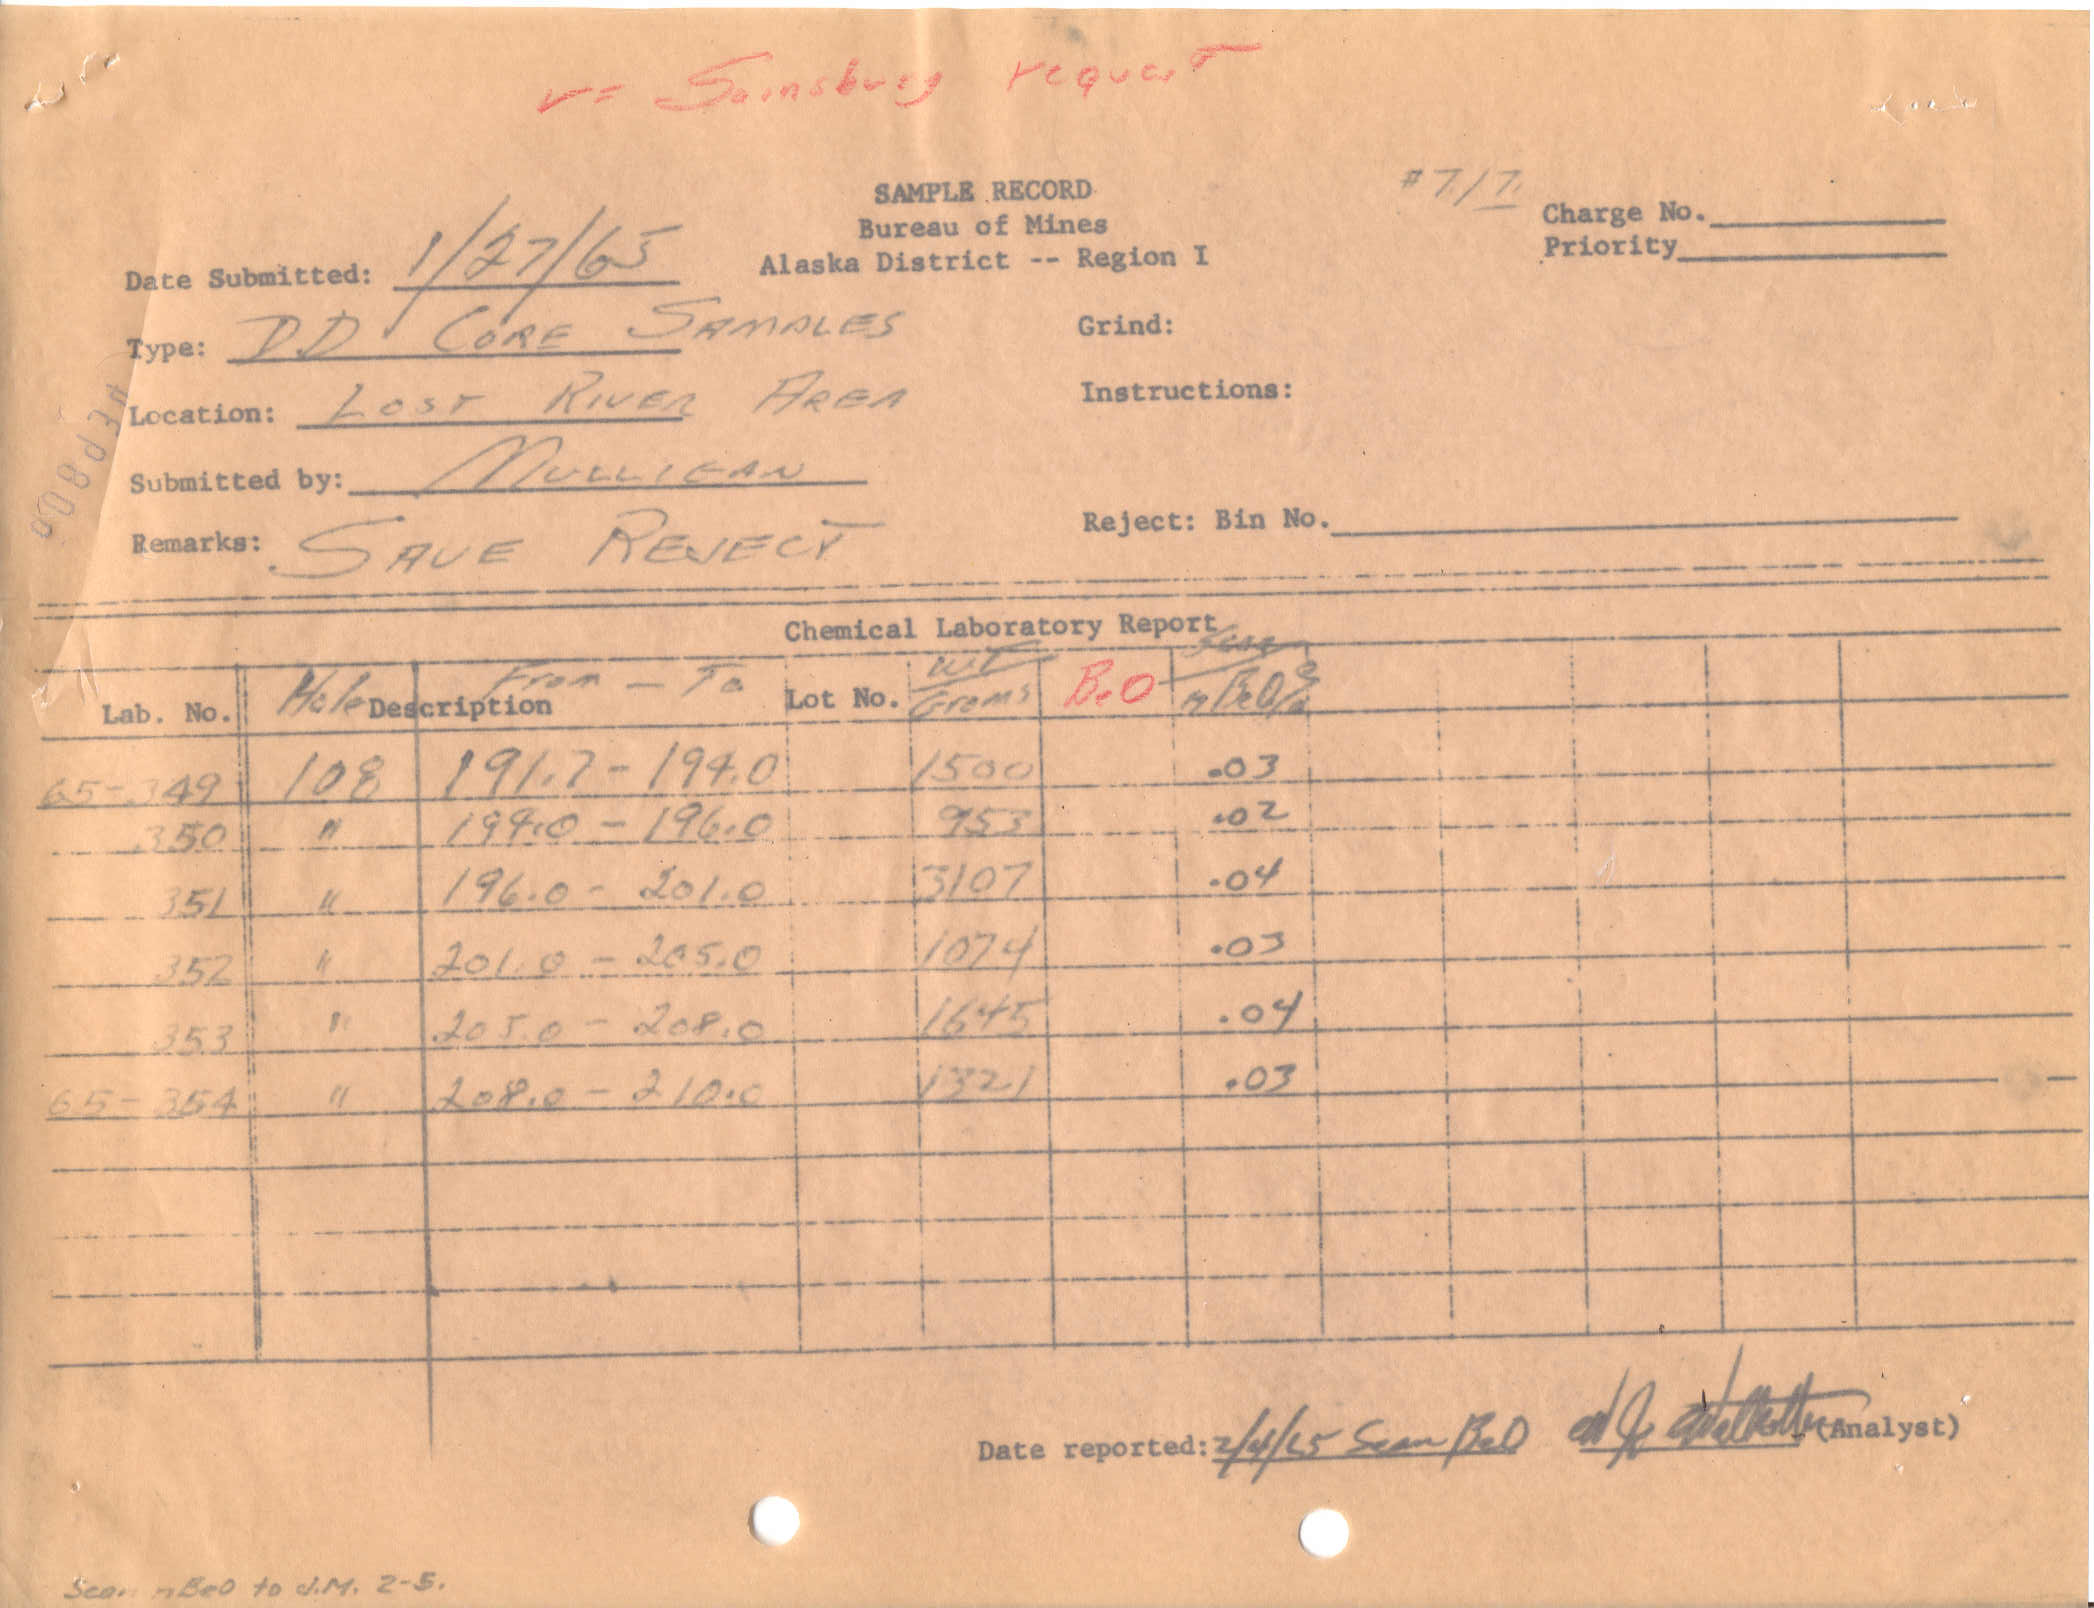 = Sainsbury request
SAMPLE RECORD
Bureau of Mines
Alaska District -- Region I
#7/7
Charge No.
Priority
Date Submitted: 1/27/65
Type: DD CORE SAMPLES
Grind:
Location: LOST RIVER AREA
Instructions:
Submitted by: MULLIGAN
Remarks: SAVE REJECT
Reject: Bin No.
Chemical Laboratory Report
Lab. No. Hole Description From - To Lot No. WT Grams BeO Scan BeO
65-349 108 191.7 - 194.0 1500 .03
350 " 194.0 - 196.0 953 .02
351 " 196.0 - 201.0 3107 .04
352 " 201.0 - 205.0 1074 .03
353 " 205.0 - 208.0 1645 .04
65-354 " 208.0 - 210.0 1321 .03
Date reported: 2/4/65 Scan BeO (Analyst)
Scan BeO to J.M. 2-5.